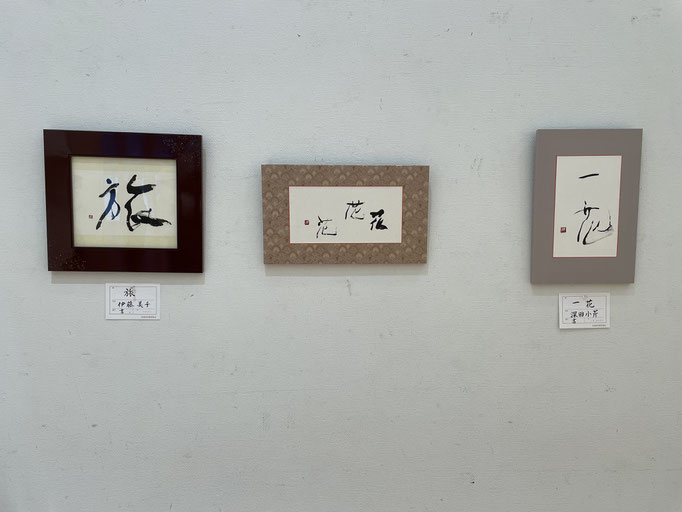 旅
旅
伊藤美千
書
花花花
一花
一花
深田小芹
書